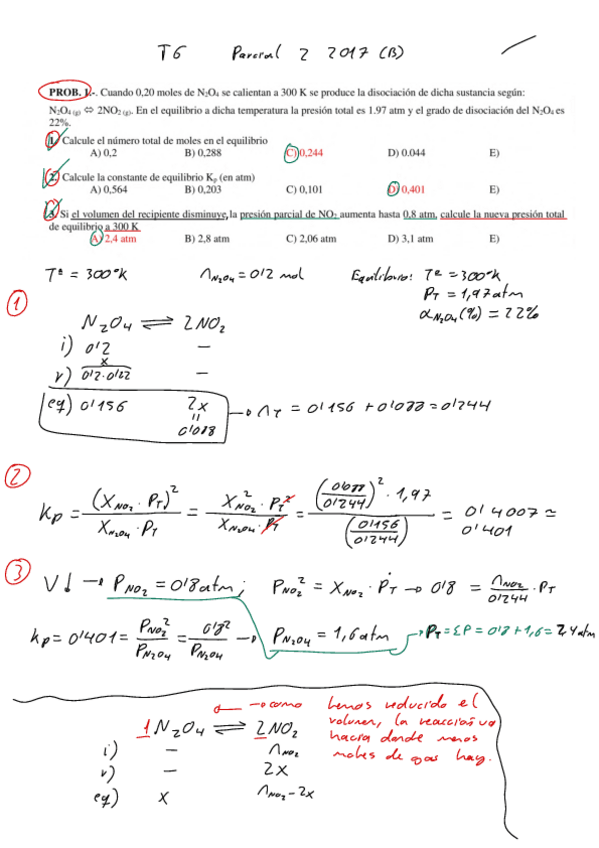 T6 Parcial 2 2017 (B)
PROB. 1.-. Cuando 0,20 moles de N₂O₄ se calientan a 300 K se produce la disociación de dicha sustancia según:
N₂O₄ (g) ⇔ 2NO₂ (g). En el equilibrio a dicha temperatura la presión total es 1.97 atm y el grado de disociación del N₂O₄ es
22%.
1. Calcule el número total de moles en el equilibrio
A) 0,2 B) 0,288 C) 0,244 D) 0.044 E)
2. Calcule la constante de equilibrio Kₚ (en atm)
A) 0,564 B) 0,203 C) 0,101 D) 0,401 E)
3. Si el volumen del recipiente disminuye, la presión parcial de NO₂ aumenta hasta 0,8 atm, calcule la nueva presión total
de equilibrio a 300 K
A) 2,4 atm B) 2,8 atm C) 2,06 atm D) 3,1 atm E)
Tª = 300°K n N₂O₄ = 0'2 mol Equilibrio: Tª = 300°K
P_T = 1,97 atm
α N₂O₄ (%) = 22%
1
N₂O₄ ⇌ 2NO₂
i) 0'2 —
x
r) 0'2·0'22 —
eq) 0'156 2x → n_T = 0'156 + 0'088 = 0'244
=
0'088
2
Kp = (X_NO₂ · P_T)² / (X_N₂O₄ · P_T) = (X²_NO₂ · P_T²) / (X_N₂O₄ · P_T) = ((0'088/0'244)² · 1,97) / (0'156/0'244) = 0'4007 ≃ 0'401
3
V↓ → P_NO₂ = 0'8 atm; P_NO₂² = X_NO₂ · P_T → 0'8 = n_NO₂/0'244 · P_T
Kp = 0'401 = P²_NO₂ / P_N₂O₄ = 0'8² / P_N₂O₄ → P_N₂O₄ = 1,6 atm → P_T = ΣP = 0'8 + 1,6 = 2,4 atm
← → como hemos reducido el
1 N₂O₄ ⇌ 2NO₂ volumen, la reacción va
i) — n NO₂ hacia donde menos
r) — 2x moles de gas hay.
eq) x n NO₂ - 2x